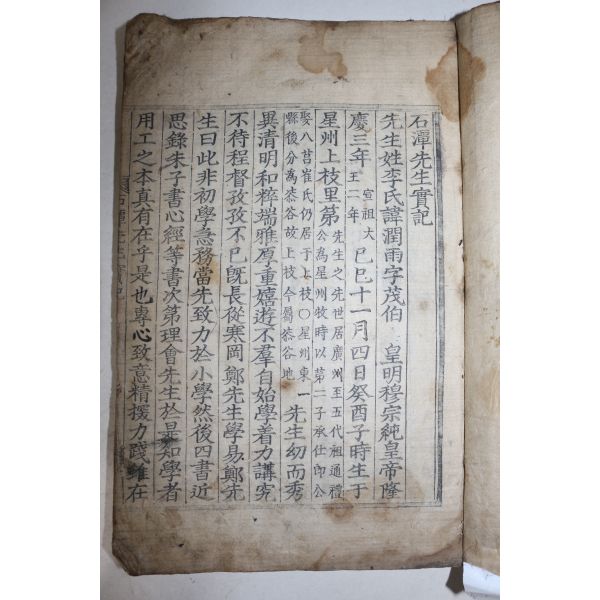 石潭先生實記
先生姓李氏諱潤雨字茂伯 皇明穆宗純皇帝隆
慶三年 宣祖大王二年 己巳十一月四日癸酉子時生于
星州上枝里第 先生之先世居廣州至五代祖通禮公爲星州牧時以第二子承仕郎公
娶八莒崔氏仍居于上枝〇星州東一縣後分爲漆谷故上枝今屬漆谷地 先生幼而秀
異清明和粹端雅厚重嬉遊不羣自始學着力講究
不待程督孜孜不已旣長從寒岡 鄭先生學易鄭先
生曰此非初學急務當先致力於小學然後四書近
思錄朱子書心經等書次第理會先生於是知學者
用工之本眞有在乎是也專心致意精援力踐雖在